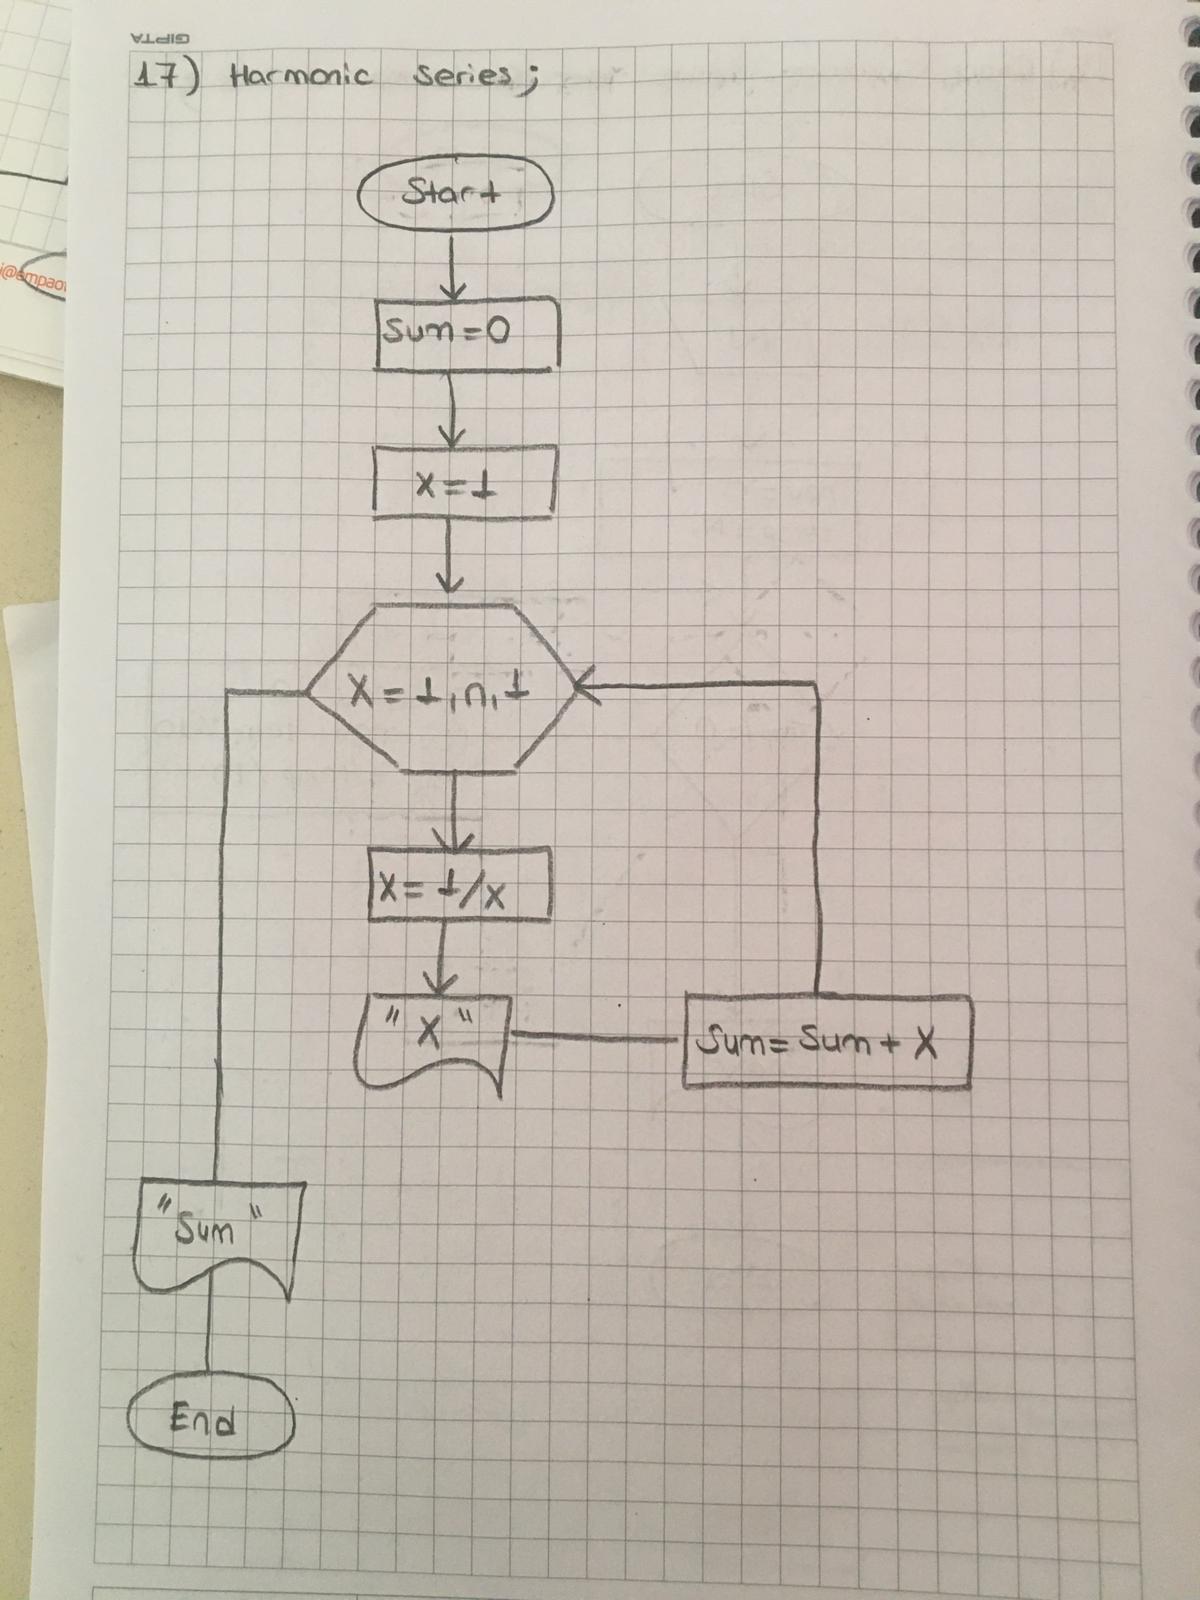 GIPTA
17) Harmonic series;
Start
Sum=0
X=1
X=1,n,1
X=1/X
"X"
Sum=Sum+X
"Sum"
End